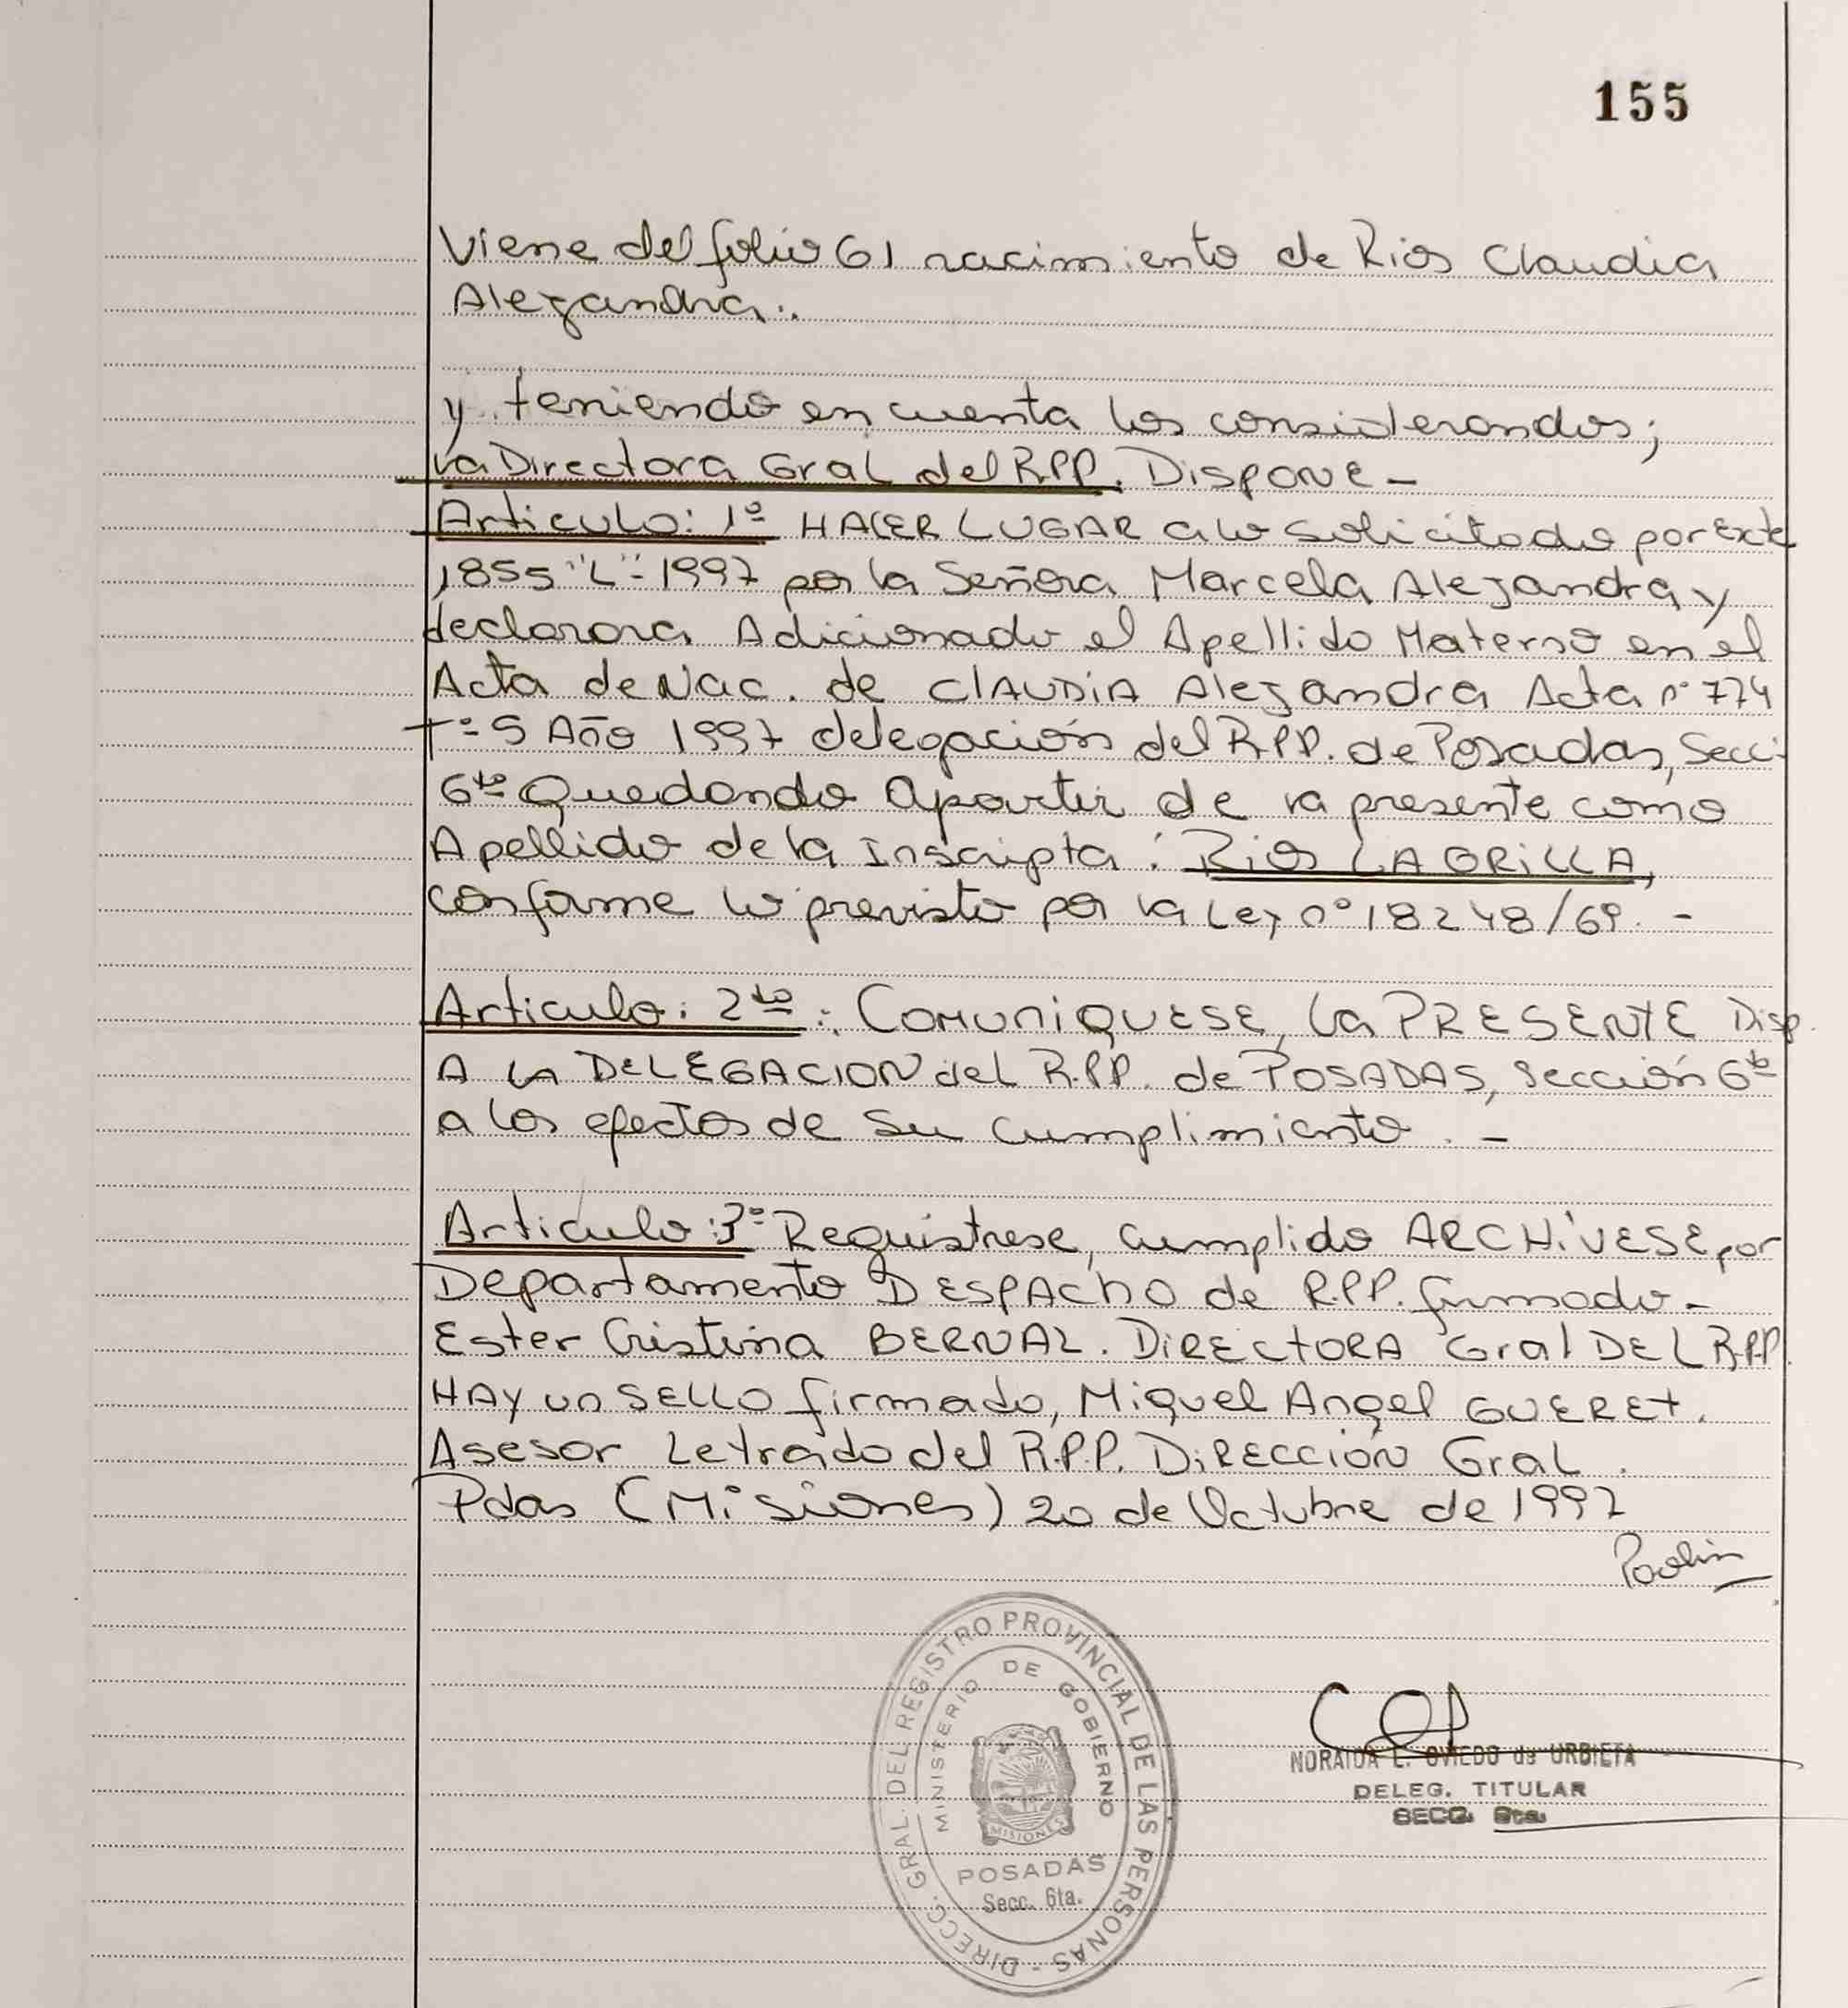 155
Viene del folio 61 nacimiento de Rios Claudia
Alejandra..
y teniendo en cuenta los considerandos;
La Directora Gral del R.P.P. Dispone -
Articulo: 1º HACER LUGAR a lo solicitado por Exte
1855 "L"-1997 por la Señora Marcela Alejandra y
declarara Adicionado el Apellido Materno en el
Acta de Nac. de CLAUDIA Alejandra Acta nº 774
Tº 5 Año 1997 delegación del R.P.P. de Posadas, Secc:
6ta Quedando apartir de la presente como
Apellido de la Inscripta: Rios LAGRILLA,
conforme lo previsto por la Ley nº 18248/69. -
Articulo: 2do: COMUNIQUESE, la PRESENTE Disp.
A LA DELEGACION del R.P.P. de POSADAS, sección 6ta
a los efectos de su cumplimiento. -
Articulo: 3º Reguistrese, cumplido ARCHÍVESE por
Departamento DESPACHO de R.P.P. firmado -
Ester Cristina BERNAL. DIRECTORA Gral DEL R.P.P.
HAY un SELLO firmado, Miguel Angel GUERET.
Asesor Letrado del R.P.P. DIRECCIÓN Gral.
Pdas (Misiones) 20 de Octubre de 1997
DIRECC. GRAL. DEL REGISTRO PROVINCIAL DE LAS PERSONAS -
MINISTERIO DE GOBIERNO
MISIONES
POSADAS
Secc. 6ta.
NORAIDA E. OVIEDO de URBIETA
DELEG. TITULAR
SECC. 6ta.